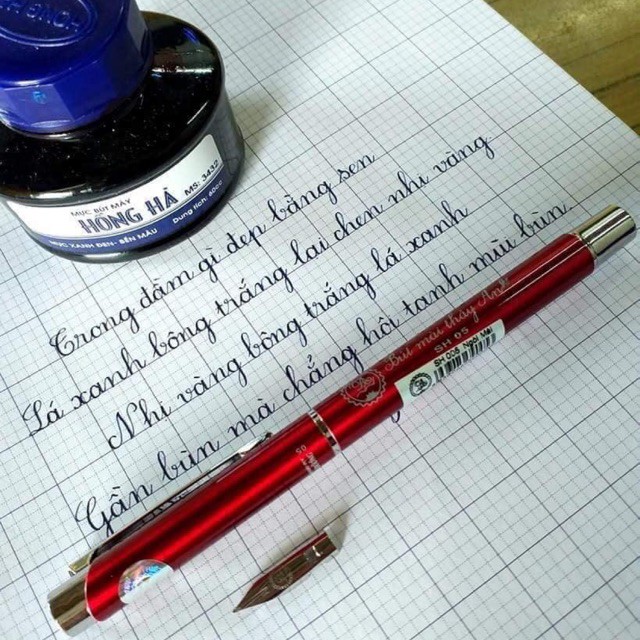 HỒNG HÀ
MỰC BÚT MÁY
HỒNG HÀ
MS: 3432
MỰC XANH ĐEN - BỀN MÀU
Dung tích: 60cc
Trong đầm gì đẹp bằng sen
Lá xanh bông trắng lại chen nhị vàng
Nhị vàng bông trắng lá xanh
Gần bùn mà chẳng hôi tanh mùi bùn
Bút mài thầy Ánh
SH 05